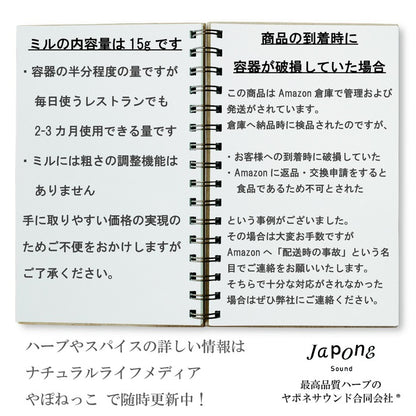 ミルの内容量は 15g です
・容器の半分程度の量ですが
毎日使うレストランでも
2-3 カ月使用できる量です
・ミルには粗さの調整機能は
ありません
手に取りやすい価格の実現の
ためご不便をおかけしますが
ご了承ください。
商品の到着時に
容器が破損していた場合
この商品は Amazon 倉庫で管理および
発送がされています。
倉庫へ納品時に検品されたのですが、
・お客様への到着時に破損していた
・Amazon に返品・交換申請をすると
食品であるため不可とされた
という事例がございました。
その場合は大変お手数ですが
Amazon へ「配送時の事故」という名
目でご連絡をお願いいたします。
そちらで十分な対応がされなかった
場合はぜひ弊社にご連絡ください。
ハーブやスパイスの詳しい情報は
ナチュラルライフメディア
やぽねっこ で随時更新中！
Japong
Sound
最高品質ハーブの
ヤポネサウンド合同会社®